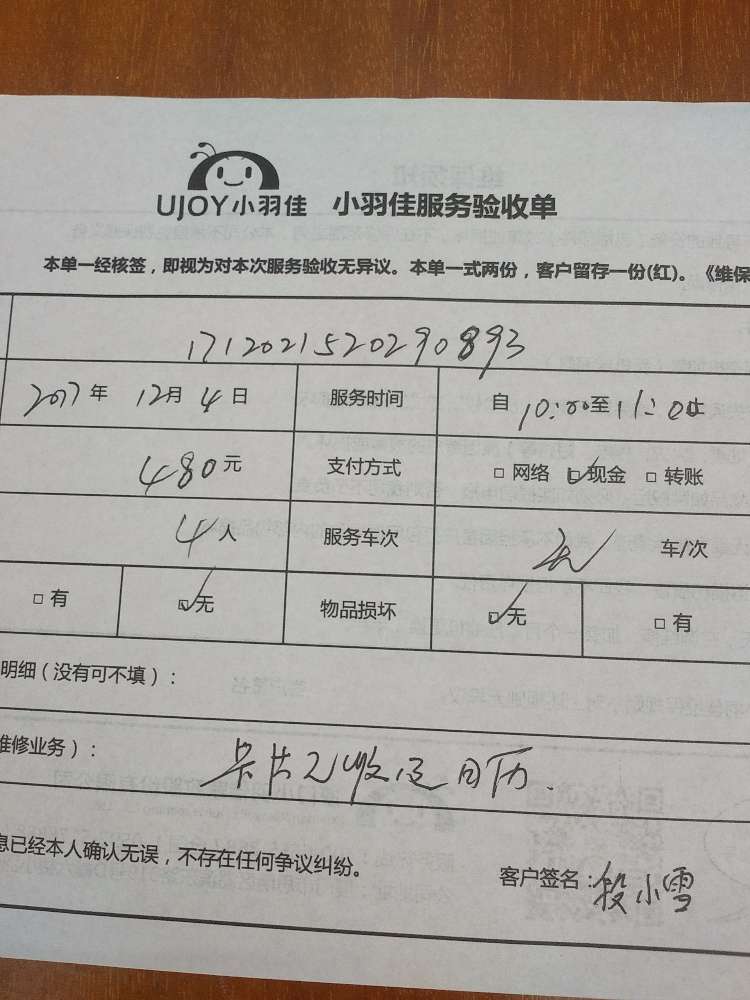 UJOY小羽佳 小羽佳服务验收单
本单一经核签，即视为对本次服务验收无异议。本单一式两份，客户留存一份(红)。《维保
171202152029089​3
2017年 12月 4日 服务时间 自 10:00至11:00止
480元 支付方式 □ 网络 ☑现金 □ 转账
4人 服务车次 车/次
□ 有 ☑无 物品损坏 ☑无 □ 有
明细（没有可不填）：
维修业务）： 卡片已收 日历.
息已经本人确认无误，不存在任何争议纠纷。
客户签名：段小雪